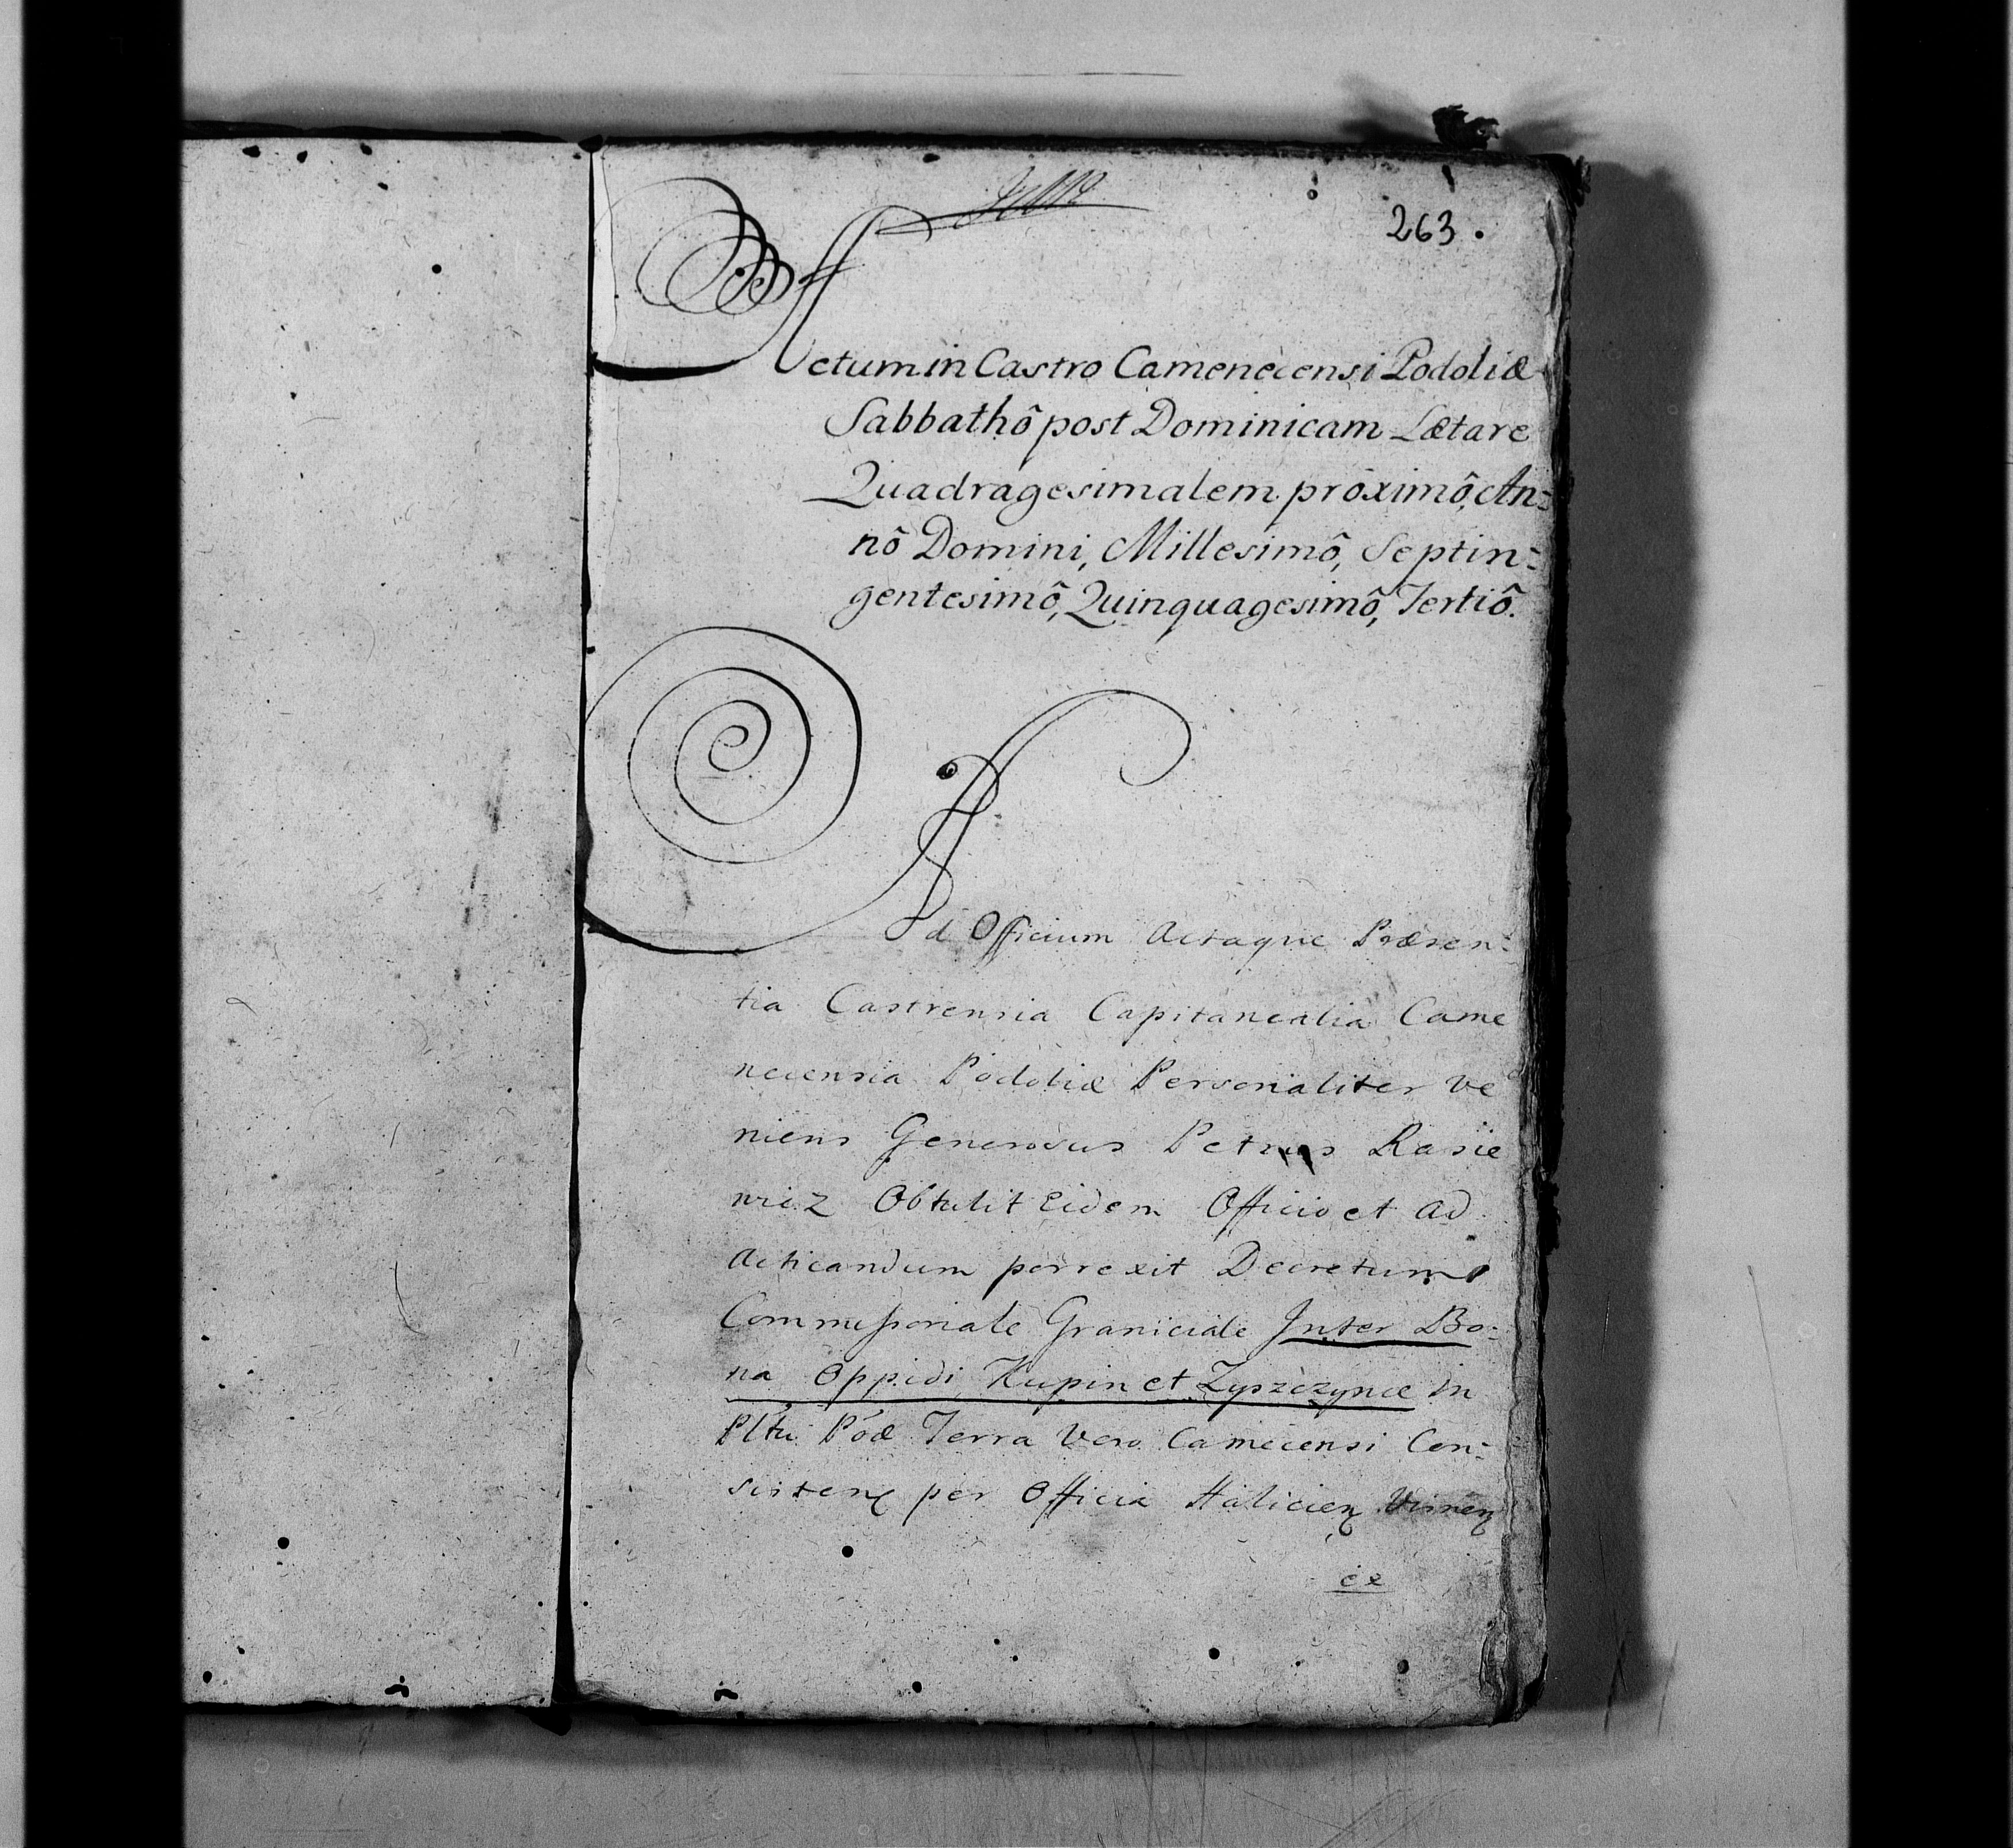 263.
Actum in Castro Camenecensi Podoliæ
Sabbathô post Dominicam Lætare
Quadragesimalem proximô, An-
nô Domini, Millesimô, Septin-
gentesimô, Quinquagesimô, Tertiô.
Ad Officium Actaque Præsen-
tia Castrensia Capitanealia Came
necensia Podoliæ Personaliter Ve
niens Generosus Petrus Rasie
wicz Obtulit Eidem Officio et ad
Acticandum porrexit Decretum
Commissoriale Graniciale Inter Bo-
na Oppidi Kupin et Zyszczynce in
Pltu Pôæ Terra Vero Camecensi Con-
sisten per Officia Halicien
ex